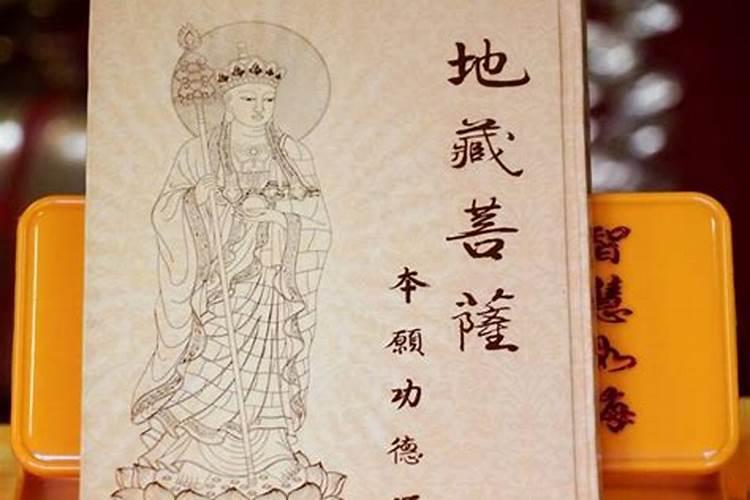 地藏菩薩
本願功德
智慧如海